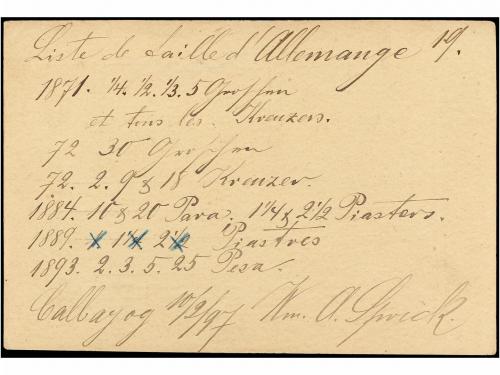 Liste de taille d'Allemange 19.
1871. 1/4. 1/2. 1/3. 5 Groschen
et tous les Kreuzers.
72 30 Groschen
72. 2. 9 & 18 Kreuzer.
1884. 10 & 20 Para. 1 1/4 & 2 1/2 Piasters.
1889. 1 1/4 2 1/2 Piastres
1893. 2. 3. 5. 25 Pesa.
Calbayog 10/2/97 Wm. A.